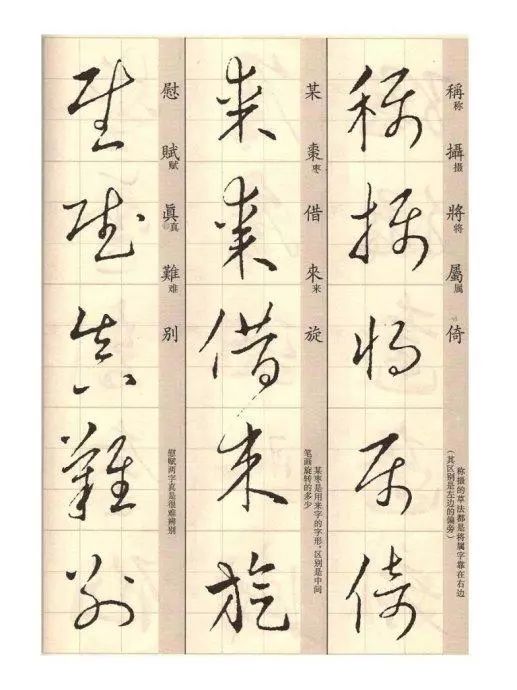 稱称 攝摄 將将 屬属 倚
称摄的草法都是将属字靠在右边
（其区别是左边的偏旁）
稱攝將屬倚
某 棗枣 借 來来 旋
某枣是用来字的字形，区别是中间
笔画旋转的多少
某棗借來旋
慰 賦赋 眞真 難难 别
慰赋两字真是很难辨别
慰賦眞難别